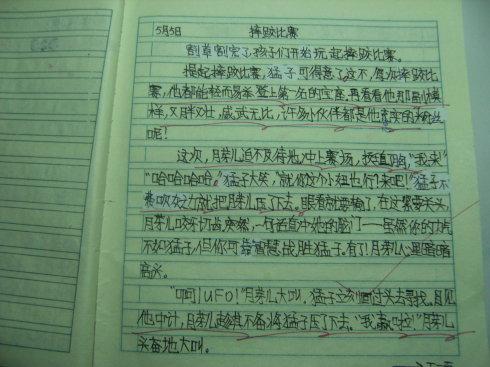 5月5日 摔跤比赛
割草割完了,孩子们开始玩起摔跤比赛。
提起摔跤比赛,猛子可得意了,这不,每次摔跤比
赛,他都能轻而易举登上第一名的宝座。再看看他那副模
样,又胖又壮,威武无比,许多小伙伴都是他忠实的粉丝
呢!
这次,月芽儿迫不及待地冲上赛场,“我来!”
“哈哈哈哈,”猛子大笑,“就你这个小妞也行!来吧!”猛子不
费吹灰之力就把月芽儿压了下去。眼看就要输了,在这紧要关头,
月芽儿咬牙切齿,突然,一句话直冲她的脑门——虽然你的力气
不如猛子,但你可靠智慧战胜猛子。有了!月芽儿心里暗暗
高兴。
“啊!UFO!”月芽儿大叫,猛子立刻回过头去寻找。见
他中计,月芽儿趁其不备,将猛子压了下去。“我赢啦!”月芽儿
头奋地大叫。